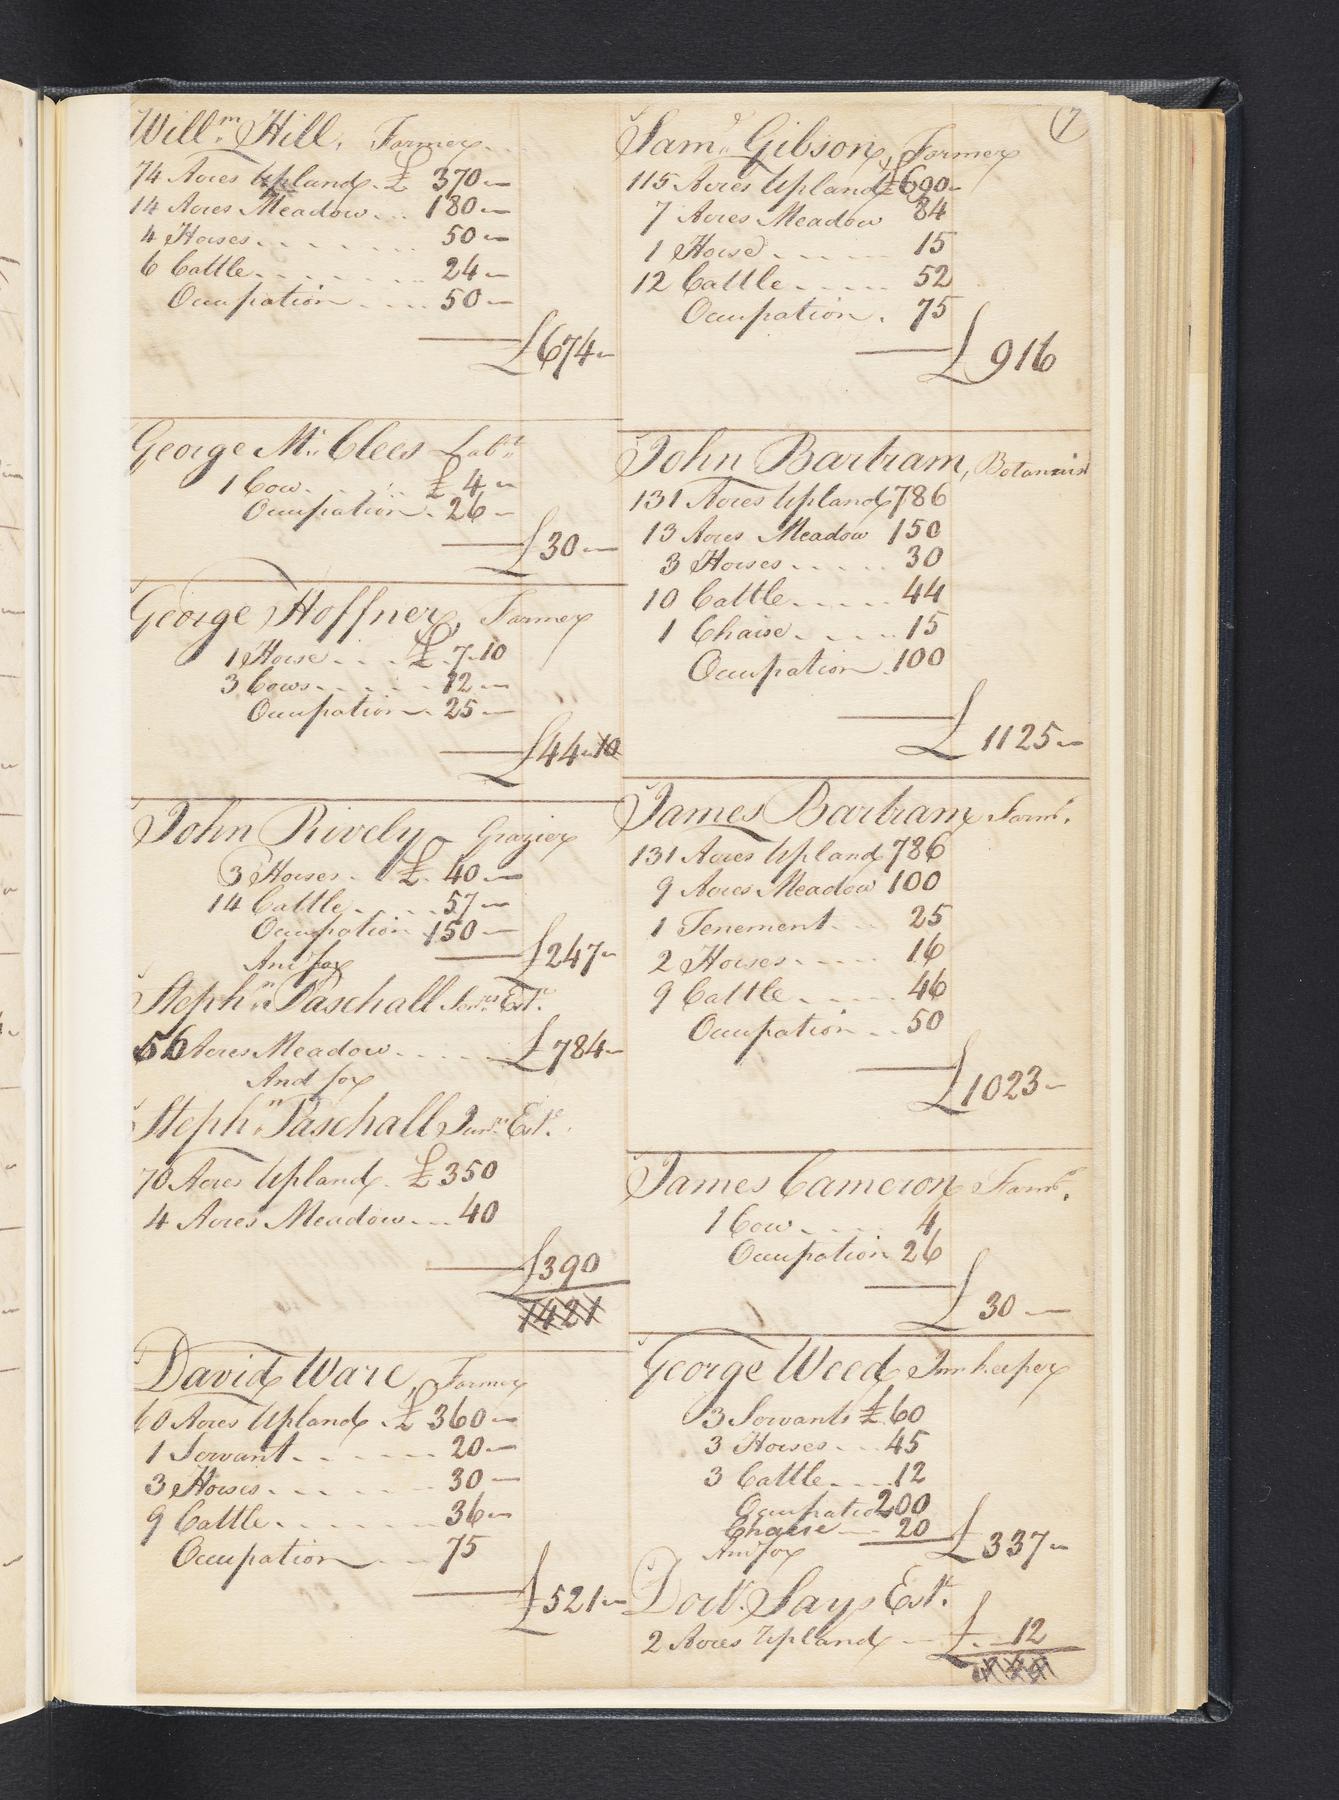 7
Willm. Hill, Farmer
74 Acres Upland . £ 370 —
14 Acres Meadow . . . 180 —
4 Horses . . . . . . 50 —
6 Cattle . . . . . . . 24 —
Occupation . . . . 50 —
£674 —
George Mc. Clees Labr.
1 Cow . . . . £ 4 —
Occupation . 26 —
£30 —
George Hoffner, Farmer
1 Horse . . . £ 7.10
3 Cows . . . . . 12 —
Occupation . 25 —
£44 — 10
John Rively Grazier
3 Horses . £ 40 —
14 Cattle . . . . 57 —
Occupation 150 —
£247 —
And for
Stephn. Paschall Senrs. Est.
56 Acres Meadow . . . . . £784 —
And for
Stephn. Paschall Junrs. Est.
70 Acres Upland . £350
4 Acres Meadow . . . 40
£390
1421
David Ware, Farmer
60 Acres Upland . £ 360 —
1 Servant . . . . . . 20 —
3 Horses . . . . . . 30 —
9 Cattle . . . . . . . 36 —
Occupation . . . 75
£521 —
Saml. Gibson, Farmer
115 Acres Upland £690 —
7 Acres Meadow 84
1 Horse . . . . . 15
12 Cattle . . . . . 52
Occupation . 75
£ 916
John Bartram, Botannist
131 Acres Upland 786
13 Acres Meadow 150
3 Horses . . . . . 30
10 Cattle . . . . . 44
1 Chaise . . . . . 15
Occupation . 100
£ 1125 —
James Bartram Farmr.
131 Acres Upland 786
9 Acres Meadow 100
1 Tenement . . . 25
2 Horses . . . . . 16
9 Cattle . . . . . 46
Occupation . . 50
£1023 —
James Cameron Farmr.
1 Cow . . . . . 4
Occupation 26
£ 30 —
George Weed Innkeeper
3 Servants £ 60
3 Horses . . . 45
3 Cattle . . . . 12
Occupation 200
Chaise — 20
£337 —
And for
Doctr. Says Est.
2 Acres Upland — £ . . 12